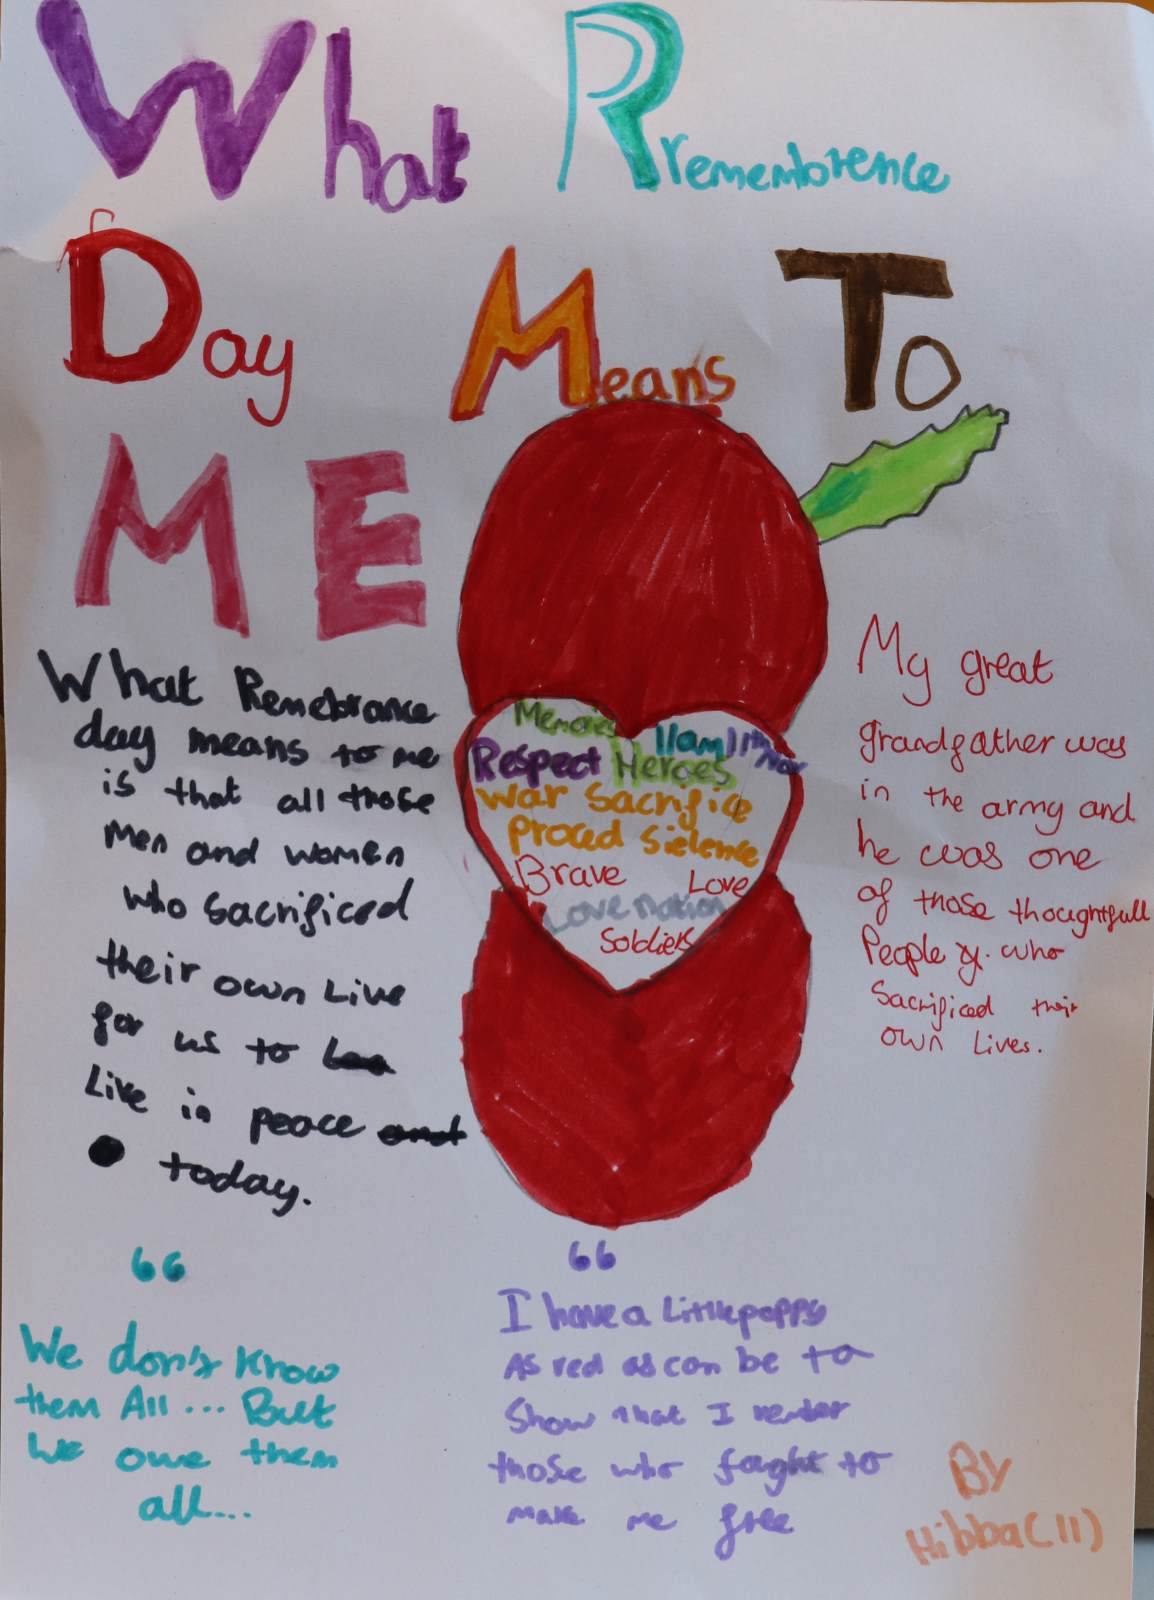 What Rremembrence
Day Means To
ME
What Remebrance
day means to me
is that all those
Men and women
who sacrificed
their own Live
for us to
Live in peace
today.
Memories 11am 11th Nov
Respect Heroes
War Sacrifice
Proced Sielence
Brave Love
Love Nation
Soldiers
My great
grandfather was
in the army and
he was one
of those thoughtfull
People who
Sacrificed their
own Lives.
66
We don't Know
them All... But
We owe them
all....
66
I have a Little poppy
As red as can be to
Show that I
those who faght to
make me free
By
Hibba(11)